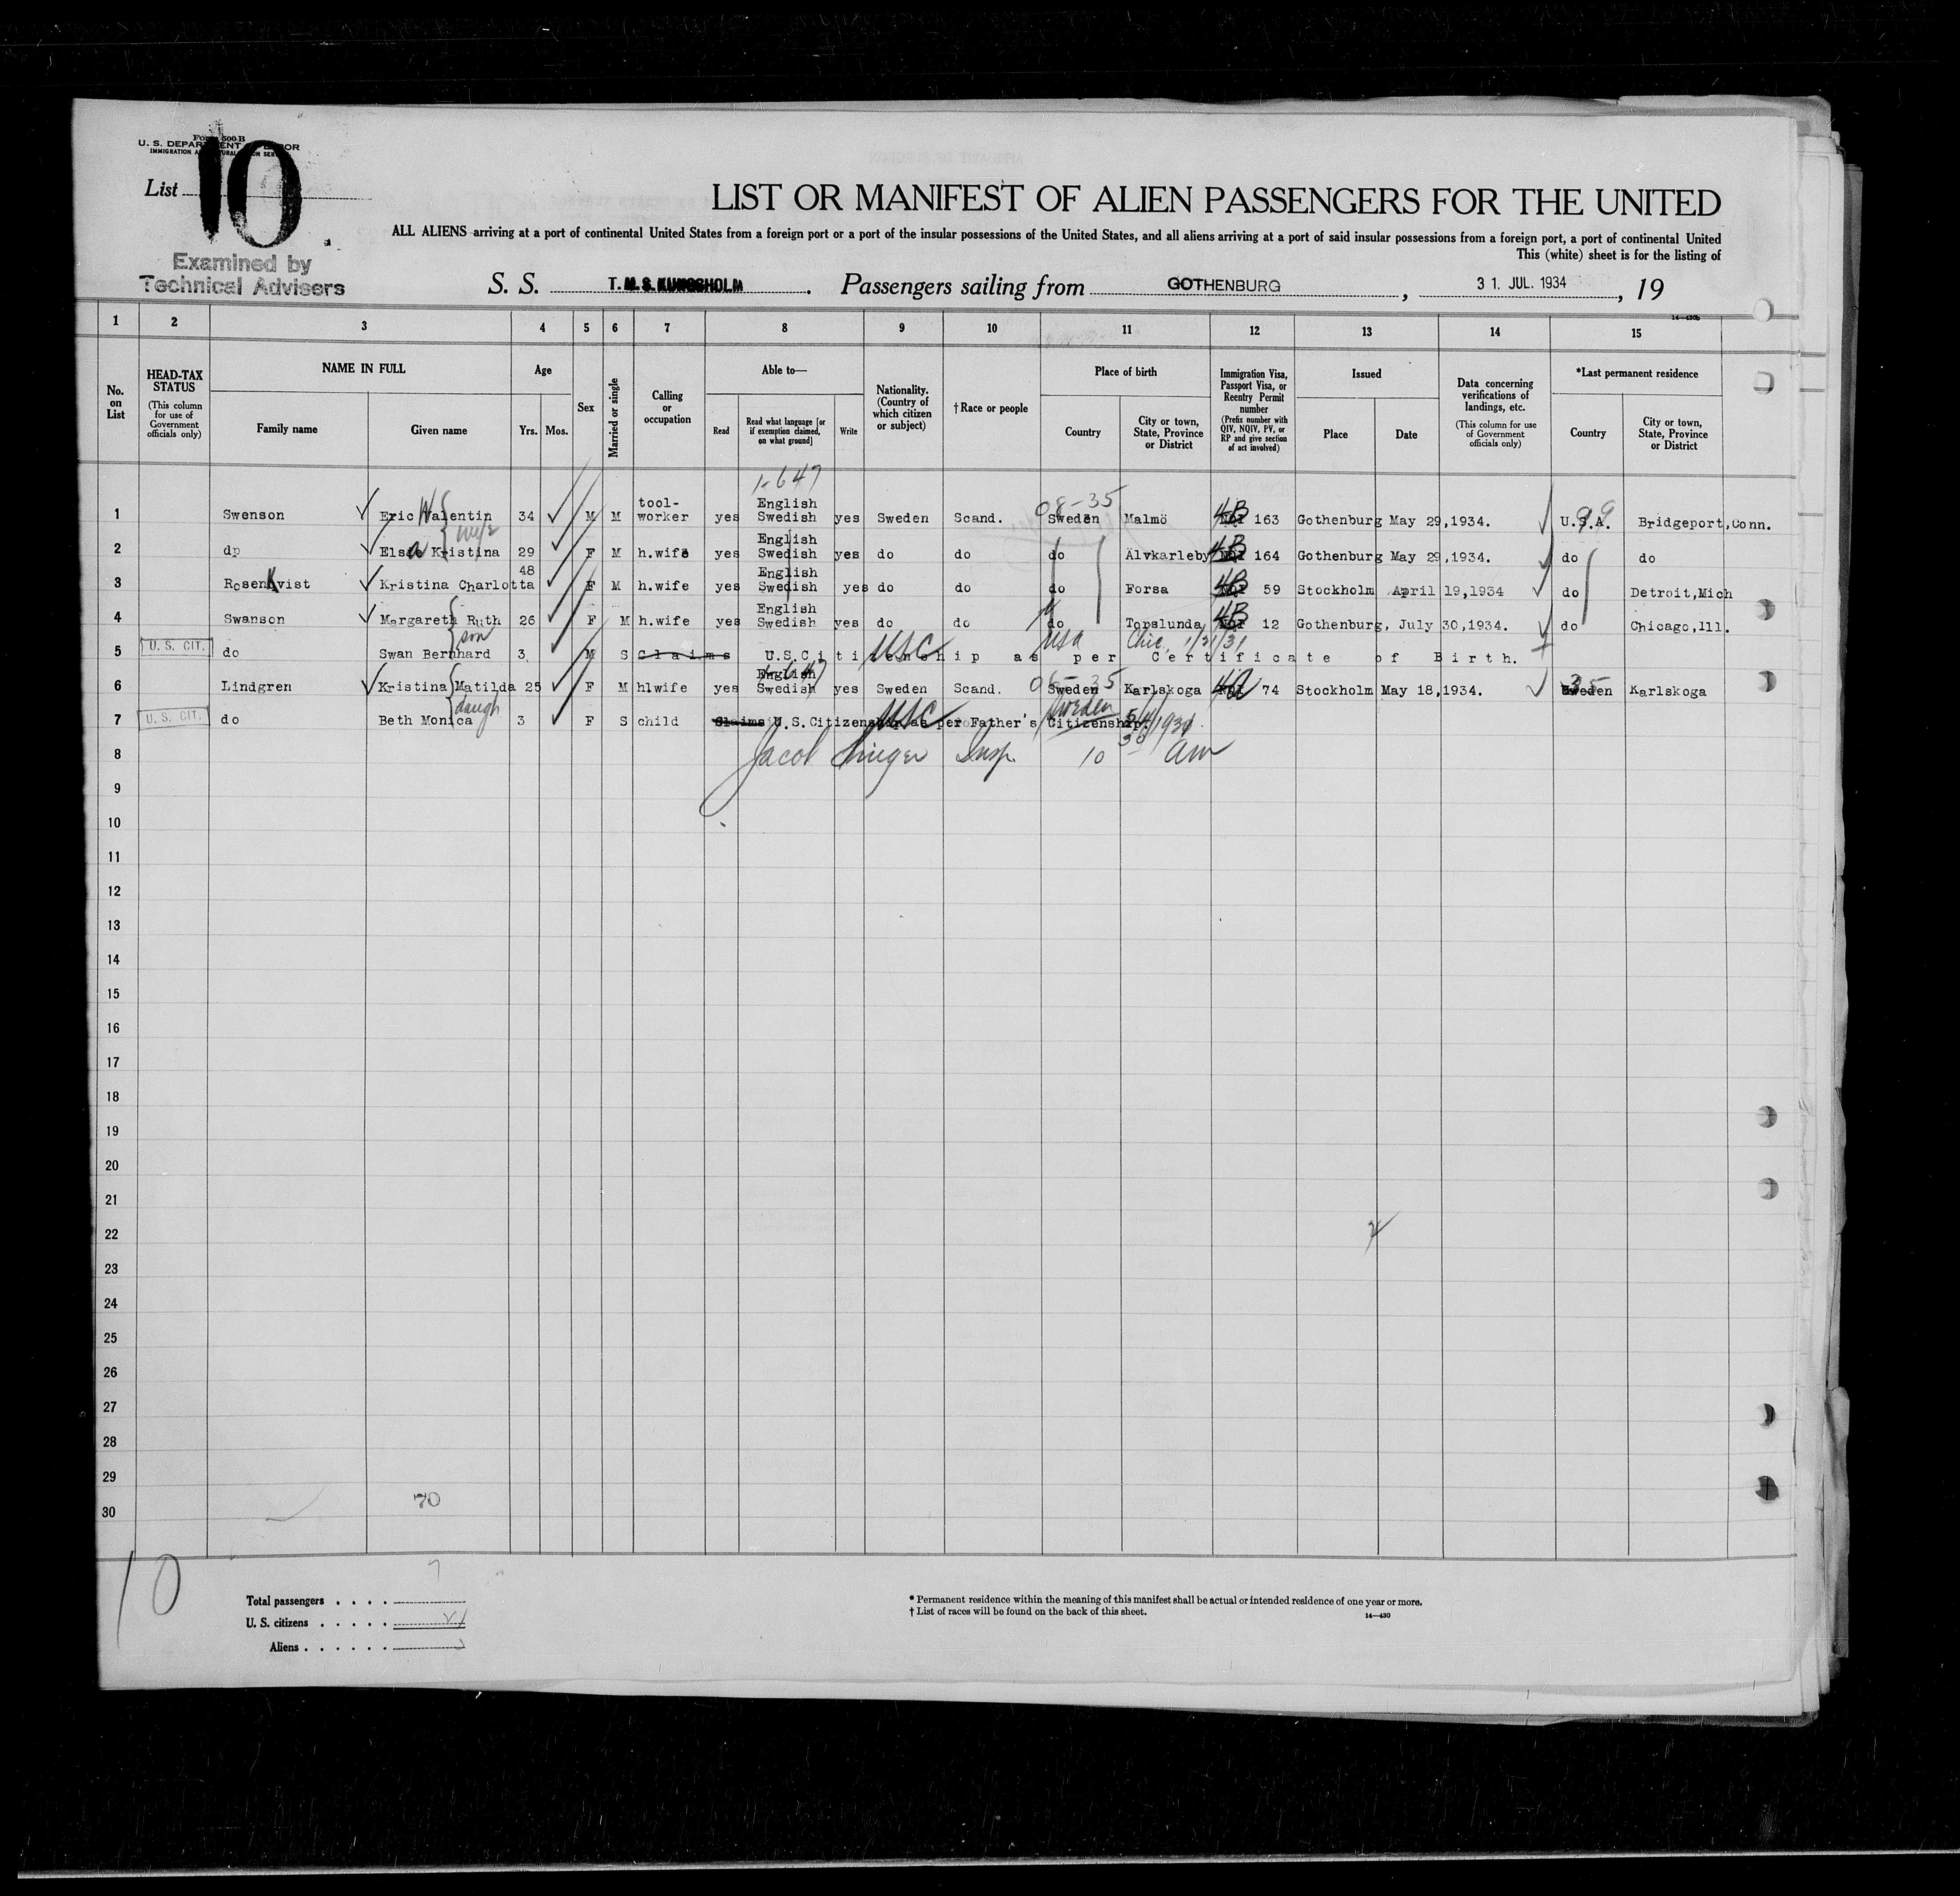 Form 500-B
U. S. DEPARTMENT OF LABOR
IMMIGRATION AND NATURALIZATION SERVICE
List 10
Examined by
Technical Advisers
LIST OR MANIFEST OF ALIEN PASSENGERS FOR THE UNITED
ALL ALIENS arriving at a port of continental United States from a foreign port or a port of the insular possessions of the United States, and all aliens arriving at a port of said insular possessions from a foreign port, a port of continental United
This (white) sheet is for the listing of
S. S. T. M. S. KUNGSHOLM. Passengers sailing from GOTHENBURG, 31. JUL. 1934, 19
14—430b
1 2 3 4 5 6 7 8 9 10 11 12 13 14 15
No. on List
HEAD-TAX STATUS (This column for use of Government officials only)
NAME IN FULL
Family name
Given name
Age
Yrs. Mos.
Sex
Married or single
Calling or occupation
Able to—
Read
Read what language [or if exemption claimed, on what ground]
Write
Nationality. (Country of which citizen or subject)
†Race or people
Place of birth
Country
City or town, State, Province or District
Immigration Visa, Passport Visa, or Reentry Permit number (Prefix number with QIV, NQIV, PV, or RP and give section of act involved)
Issued
Place
Date
Data concerning verifications of landings, etc. (This column for use of Government officials only)
*Last permanent residence
Country
City or town, State, Province or District
1-647
1 Swenson Eric Valentin 34 M M tool-worker yes English Swedish yes Sweden Scand. 08-35 Sweden Malmö 4B 163 Gothenburg May 29,1934. 99 U.S.A. Bridgeport,Conn.
wife
2 do Elsa Kristina 29 F M h.wife yes English Swedish yes do do do Älvkarleby 4B 164 Gothenburg May 29,1934. do do
3 Rosenkvist Kristina Charlotta 48 F M h.wife yes English Swedish yes do do do Forsa 4B 59 Stockholm April 19,1934 do Detroit,Mich
4 Swanson Margareth Ruth 26 F M h.wife yes English Swedish yes do do do Torslunda 4B 12 Gothenburg, July 30,1934. do Chicago,Ill.
son USC USA Chic. 1/21/31
5 U.S. CIT. do Swan Bernhard 3 M S Claims U.S.Citizenship as per Certificate of Birth.
6 Lindgren Kristina Matilda 25 F M hlwife yes English Swedish yes Sweden Scand. 08-35 Sweden Karlskoga 4A 74 Stockholm May 18,1934. 35 Sweden Karlskoga
daugh USC Sweden 5/4/1931
7 U.S. CIT. do Beth Monica 3 F S child Claims U.S.Citizenship as per Father's Citizenship.
8 Jacob Insp. 10 30 am
9
10
11
12
13
14
15
16
17
18
19
20
21
22
23
24
25
26
27
28
29
30
70
10
7
Total passengers
U. S. citizens
Aliens
* Permanent residence within the meaning of this manifest shall be actual or intended residence of one year or more.
† List of races will be found on the back of this sheet.
14—430